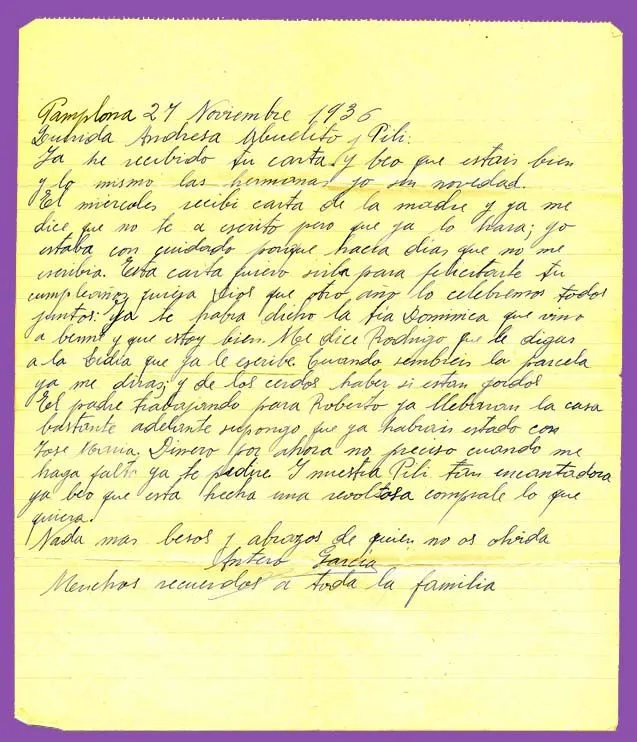 Pamplona 27 Noviembre 1936
Querida Andresa Abuelito y Pili:
Ya he recibido tu carta y beo que estais bien
y lo mismo las hermanas yo sin novedad.
El miercoles recibi carta de la madre y ya me
dice que no te a escrito pero que ya lo hara; yo
estaba con cuidado porque hacia dias que no me
escribia. Esta carta quiero sirba para felicitarte tu
cumpleaños quiera Dios que otro año lo celebremos todos
juntos: Ya te habra dicho la tia Dominica que vino
a berme y que estoy bien. Me dice Rodrigo que le digas
a la Lidia que ya le escribe. Cuando sembreis la parcela
ya me diras; y de los cerdos haber si estan gordos
El padre trabajando para Roberto ya llebaran la casa
bastante adelante supongo que ya habrais estado con
Jose Maria. Dinero por ahora no preciso cuando me
haga falta ya te pedire Y nuestra Pili tan encantadora
ya beo que esta hecha una revoltosa comprale lo que
quiera.
Nada mas besos y abrazos de quien no os olvida
Antero García
Muchos recuerdos a toda la familia